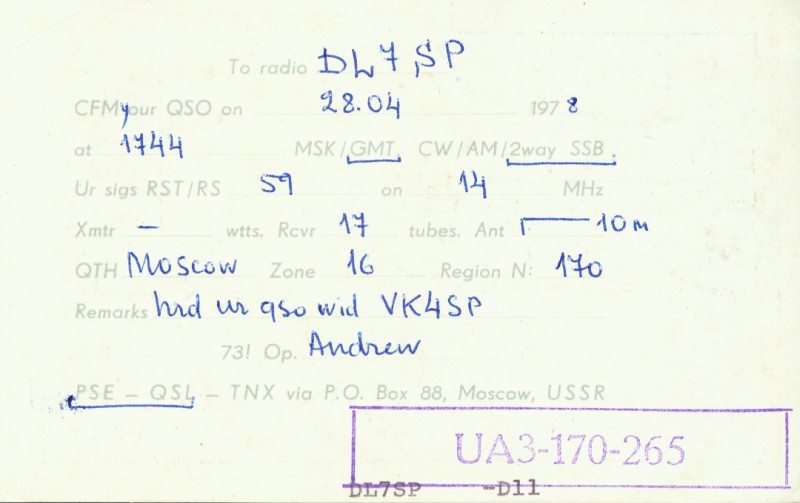 To radio DL7SP
CFM your QSO on 28.04 1978
at 1744 MSK/GMT, CW/AM/2way SSB.
Ur sigs RST/RS 59 on 14 MHz
Xmtr – wtts. Rcvr 17 tubes. Ant 10 m
QTH Moscow Zone 16 Region N: 170
Remarks hrd ur qso wid VK4SP
73! Op. Andrew
PSE – QSL – TNX via P.O. Box 88, Moscow, USSR
UA3-170-265
DL7SP -D11